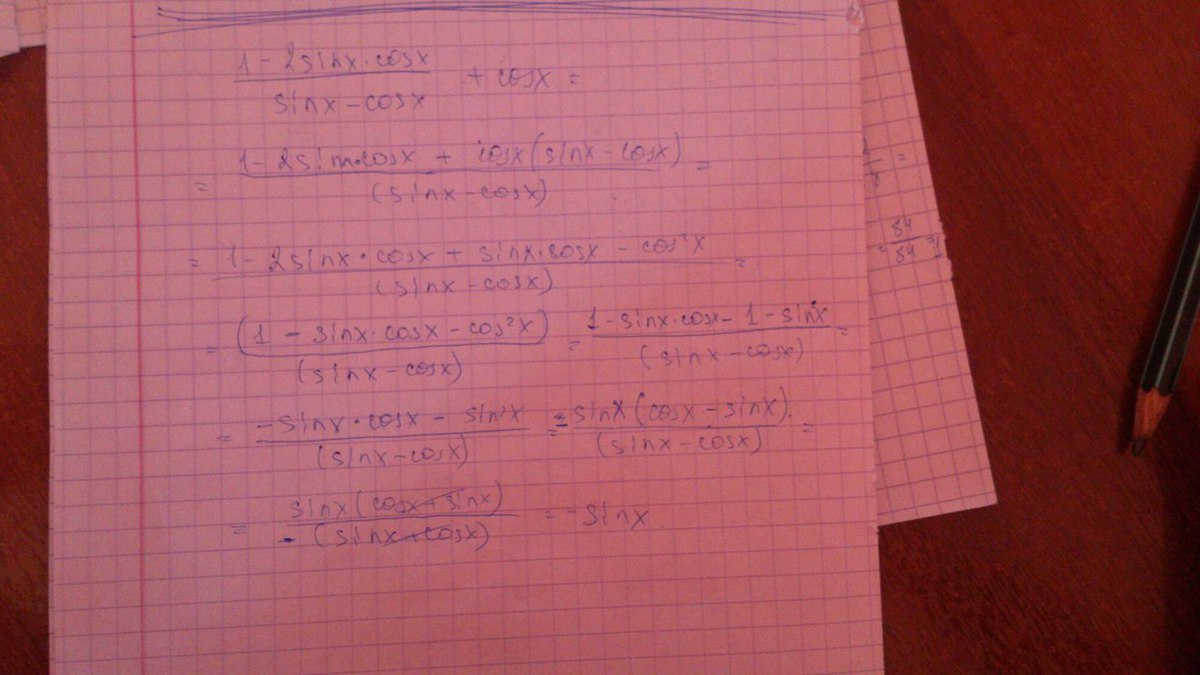 1 - 2sinx·cosx
sinx - cosx
+ cosx =
1 - 2sinx·cosx + cosx(sinx - cosx)
=
(sinx - cosx)
=
= 1 - 2sinx·cosx + sinx·cosx - cos²x =
(sinx - cosx)
= (1 - sinx·cosx - cos²x)
(sinx - cosx)
= 1 - sinx·cosx - 1 - sin²x =
(sinx - cosx)
= -sinx·cosx - sin²x
(sinx - cosx)
= -sinx(cosx - sinx)
(sinx - cosx)
=
= sinx(cosx + sinx)
-(sinx + cosx)
= -sinx
=
= 84
84
= 1